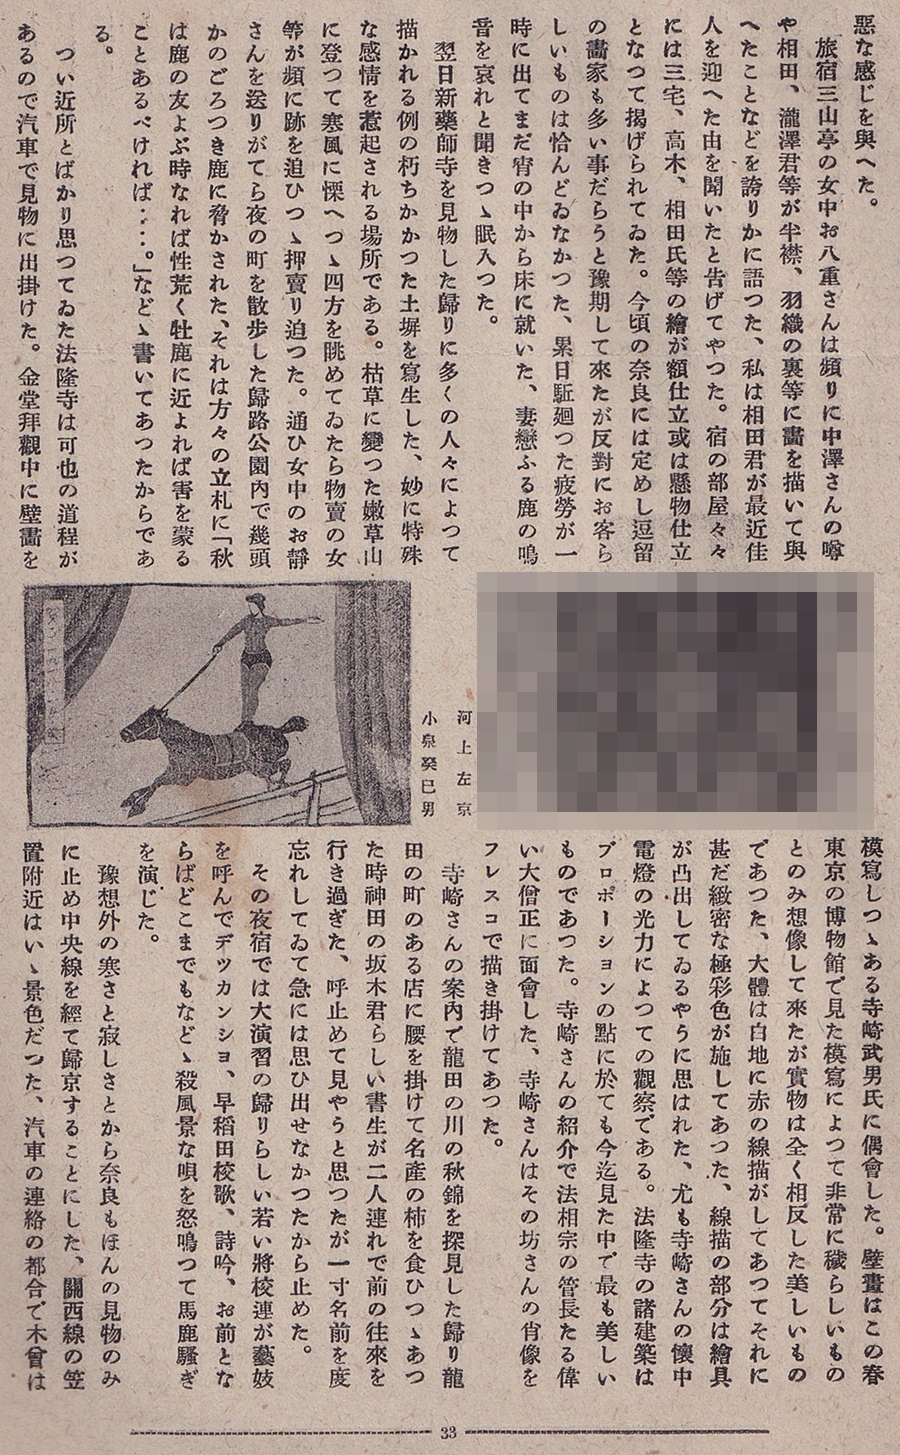 悪な感じを與へた。
旅宿三山亭の女中お八重さんは頻りに中澤さんの噂
や相田、瀧澤君等が半襟、羽織の裏等に畵を描いて與
へたことなどを誇りかに語つた、私は相田君が最近佳
人を迎へた由を聞いたと告げてやつた。宿の部屋々々
には三宅、高木、相田氏等の繪が額仕立或は懸物仕立
となつて揭げられてゐた。今頃の奈良には定めし逗留
の畵家も多い事だらうと豫期して來たが反對にお客ら
しいものは恰んどゐなかつた、累日駈廻つた疲勞が一
時に出てまだ宵の中から床に就いた、妻戀ふる鹿の鳴
音を哀れと聞きつゝ眠入つた。
翌日新藥師寺を見物した歸りに多くの人々によつて
描かれる例の朽ちかかつた土塀を寫生した、妙に特殊
な感情を惹起される場所である。枯草に變つた嫩草山
に登つて寒風に慄へつゝ四方を眺めてゐたら物賣の女
等が頻に跡を追ひつゝ押賣り迫つた。通ひ女中のお靜
さんを送りがてら夜の町を散步した歸路公園內で幾頭
かのごろつき鹿に脅かされた、それは方々の立札に「秋
は鹿の友よぶ時なれば性荒く牡鹿に近よれば害を蒙る
ことあるべければ：：。」などゝ書いてあつたからであ
る。
つい近所とばかり思つてゐた法隆寺は可也の道程が
あるので汽車で見物に出掛けた。金堂拜觀中に壁畵を
河上左京
小泉癸巳男
模寫しつゝある寺崎武男氏に偶會した。壁畫はこの春
東京の博物館で見た模寫によつて非常に穢らしいもの
とのみ想像して來たが實物は全く相反した美しいもの
であつた、大體は白地に赤の線描がしてあつてそれに
甚だ緻密な極彩色が施してあつた、線描の部分は繪具
が凸出してゐるやうに思はれた、尤も寺崎さんの懷中
電燈の光力によつての觀察である。法隆寺の諸建築は
プロポーションの點に於ても今迄見た中で最も美しい
ものであつた。寺崎さんの紹介で法相宗の管長たる偉
い大僧正に面會した、寺崎さんはその坊さんの肖像を
フレスコで描き掛けてあつた。
寺崎さんの案內で龍田の川の秋錦を探見した歸り龍
田の町のある店に腰を掛けて名產の柿を食ひつゝあつ
た時神田の坂木君らしい書生が二人連れで前の往來を
行き過ぎた、呼止めて見やうと思つたが一寸名前を度
忘れしてゐて急には思ひ出せなかつたから止めた。
その夜宿では大演習の歸りらしい若い將校連が藝妓
を呼んでデツカンシヨ、早稻田校歌、詩吟、お前とな
らばどこまでもなどゝ殺風景な唄を怒鳴つて馬鹿騷ぎ
を演じた。
豫想外の寒さと寂しさとから奈良もほんの見物のみ
に止め中央線を經て歸京することにした、關西線の笠
置附近はいゝ景色だつた、汽車の連絡の都合で木曾は
33